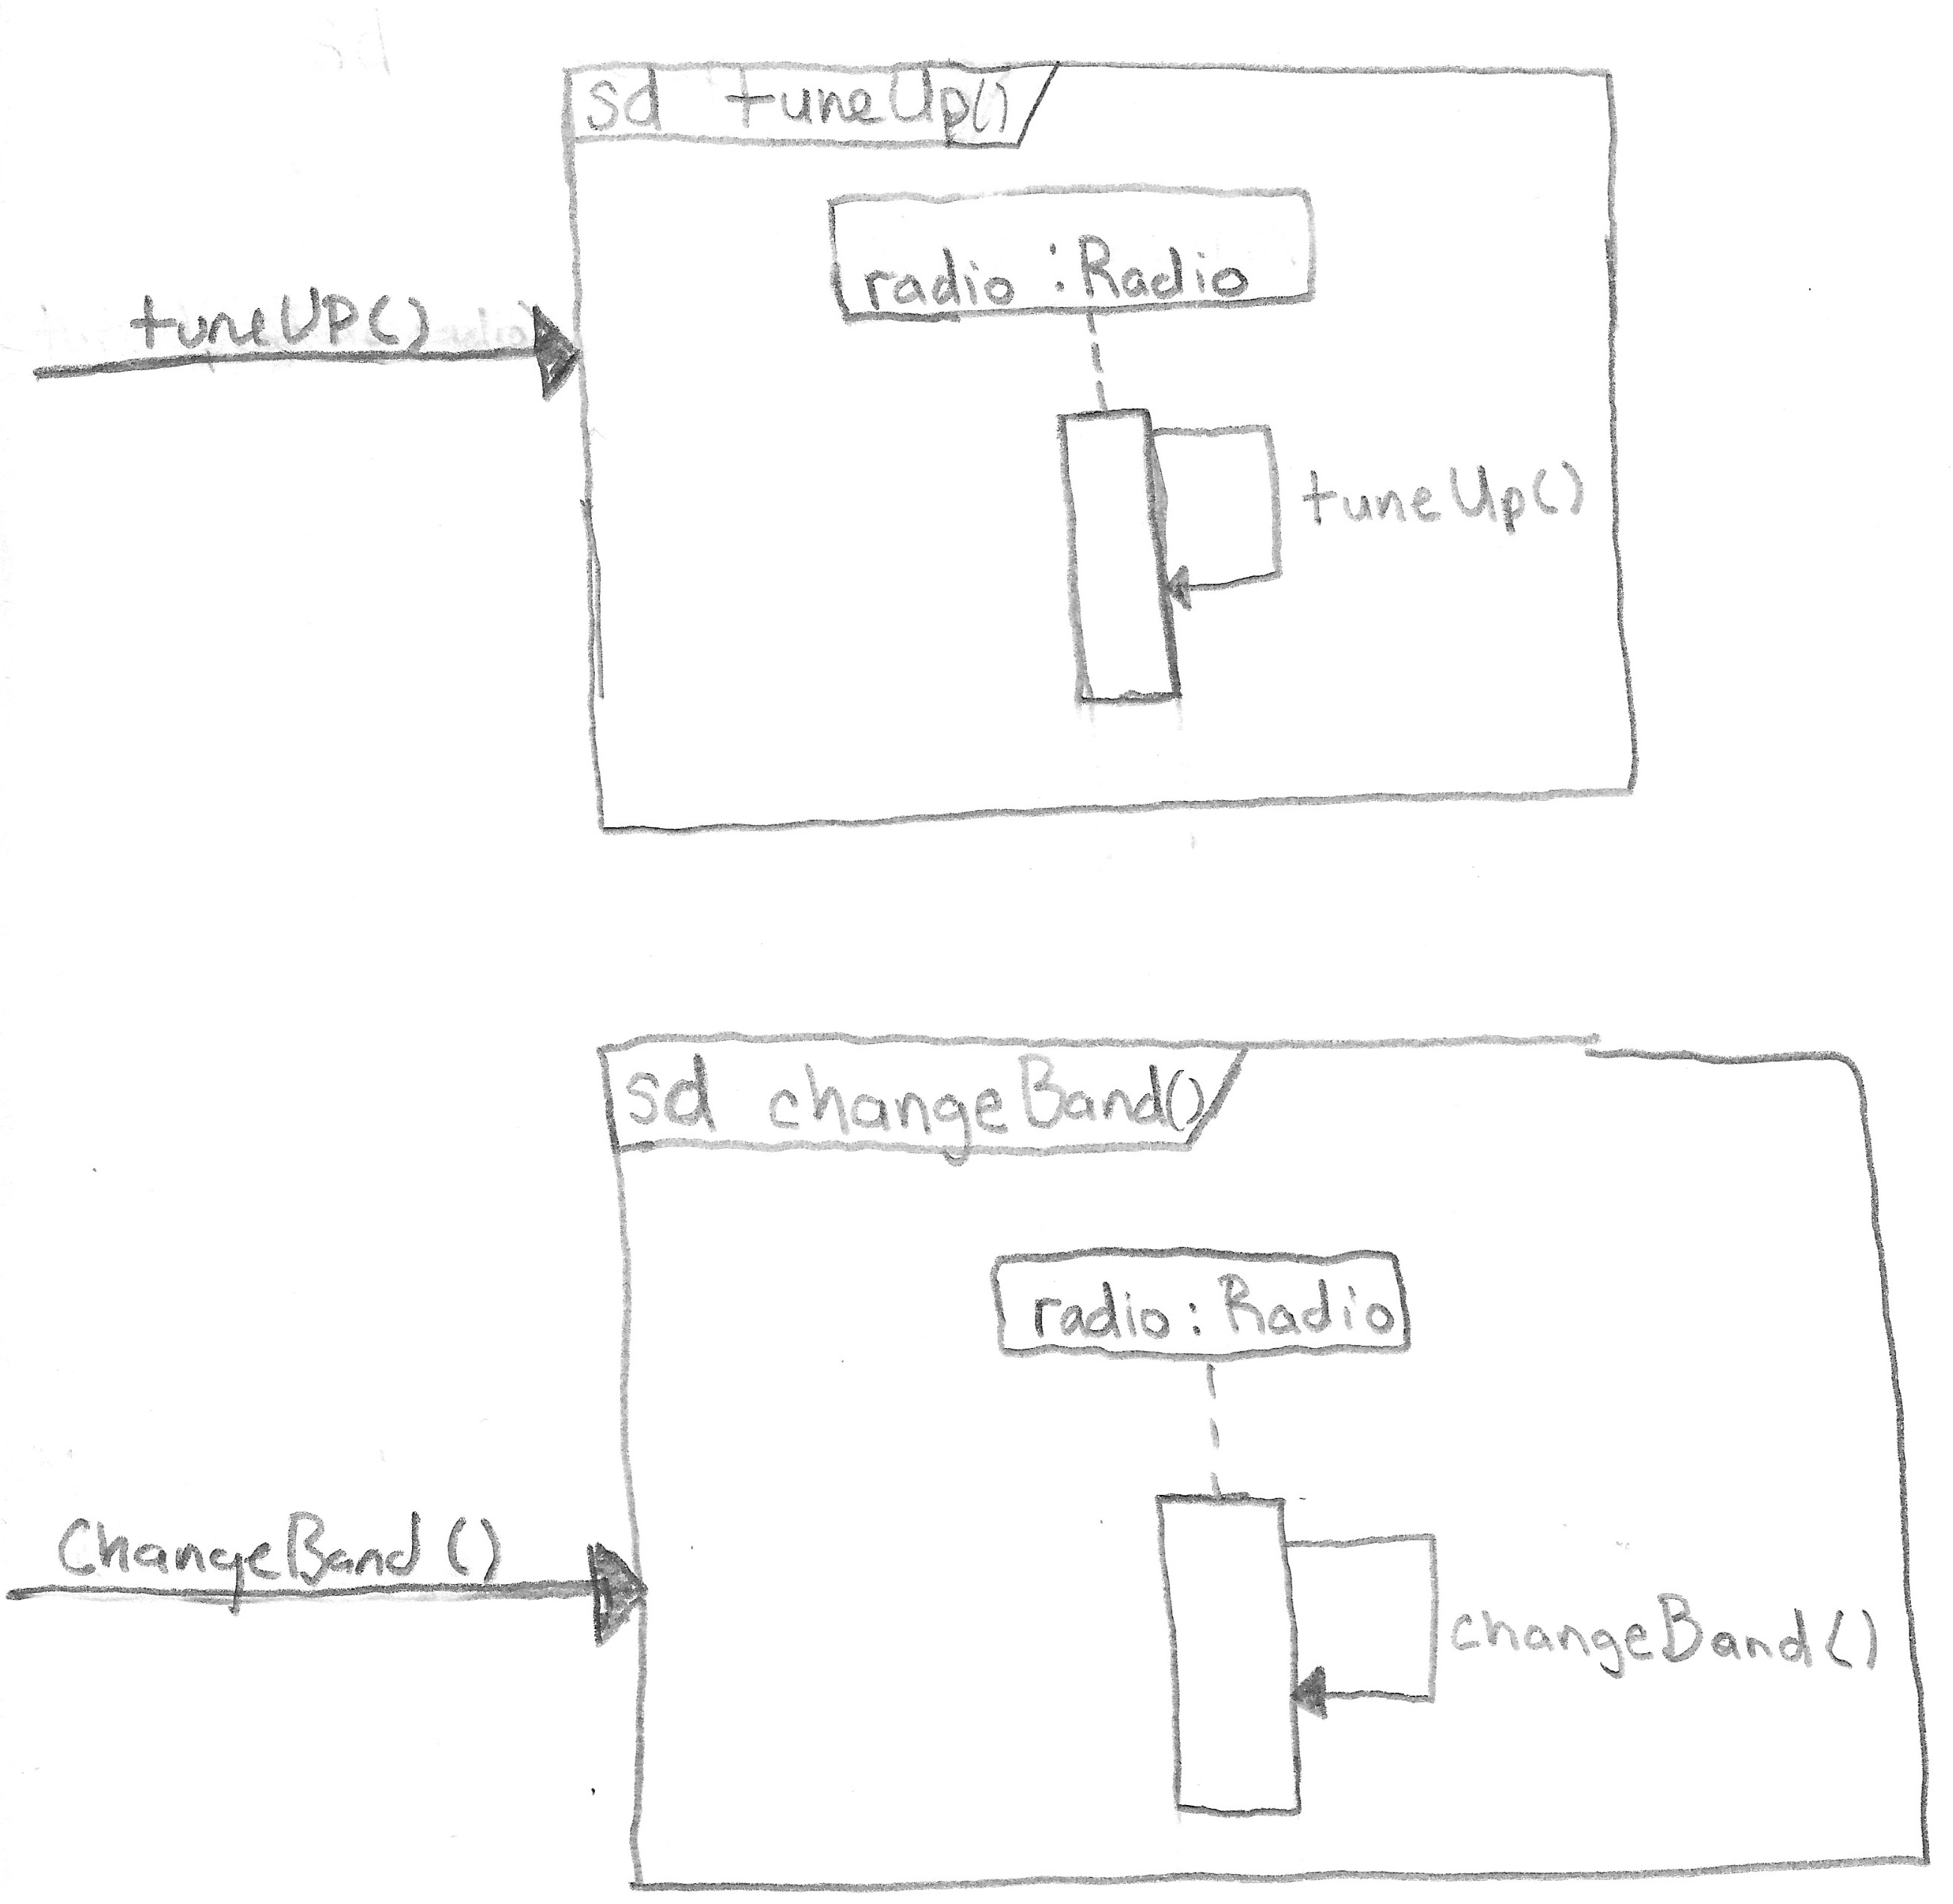 sd tuneUp()
radio :Radio
tuneUP()
tuneUp()
sd changeBand()
radio: Radio
ChangeBand ()
changeBand()